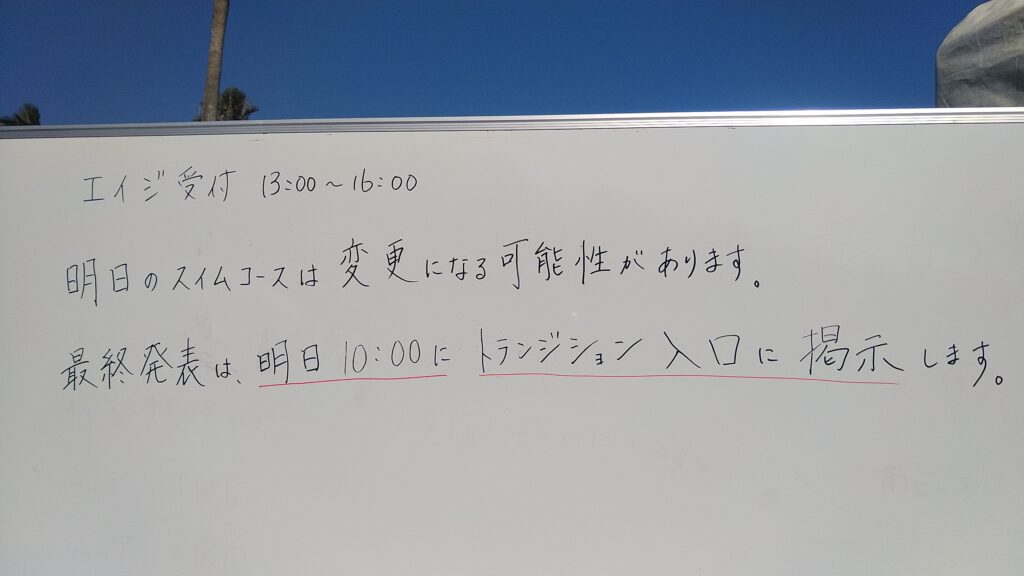 エイジ受付 13:00～16:00
明日のスイムコースは変更になる可能性があります。
最終発表は、明日10:00にトランジション入口に掲示します。